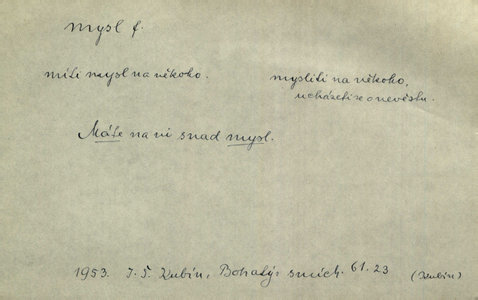 mysl f.
míti mysl na někoho. mysliti na někoho,
ucházeti se o nevěstu.
Máte na ni snad mysl.
1953. J. Š. Kubín, Bohatýr smích. 61.23 (Kubín)